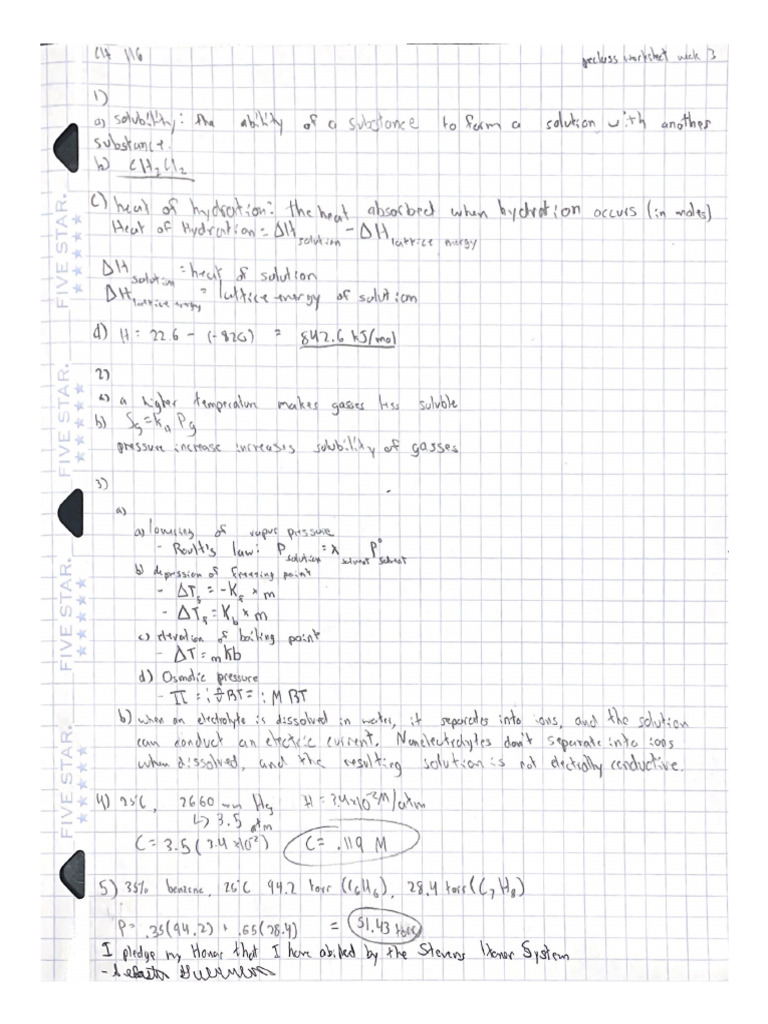 CH 116
preclass worksheet week 3
1)
a) solubility: the ability of a substance to form a solution with another
substance.
b) CH₂Cl₂
c) heat of hydration: the heat absorbed when hydration occurs (in moles)
Heat of Hydration = ΔH solution - ΔH lattice energy
ΔH solution = heat of solution
ΔH lattice energy = lattice energy of solution
d) H = 22.6 - (-820) = 842.6 kJ/mol
2)
a) a higher temperature makes gasses less soluble
b) Sg = kn Pg
pressure increase increases solubility of gasses
3)
a)
a) lowering of vapor pressure
- Roult's law: P solution = x solvent P° solvent
b) depression of freezing point
- ΔTf = -Kf × m
- ΔTf = Kb × m
c) elevation of boiling point
- ΔT = mKb
d) Osmotic pressure
- Π = i n/v RT = i M RT
b) when an electrolyte is dissolved in water, it separates into ions, and the solution
can conduct an electric current. Nonelectrolytes don't separate into ions
when dissolved, and the resulting solution is not electrically conductive.
4) 25°C, 2660 mm Hg H = 3.4x10⁻²M/atm
↳ 3.5 atm
C = 3.5(3.4x10⁻²) C = .119 M
5) 35% benzene, 26°C 94.2 torr (C₆H₆), 28.4 torr (C₇H₈)
P = .35(94.2) + .65(28.4) = 51.43 torr
I pledge my Honor that I have abided by the Stevens Honor System
FIVE STAR.
FIVE STAR.
FIVE STAR.
FIVE STAR.